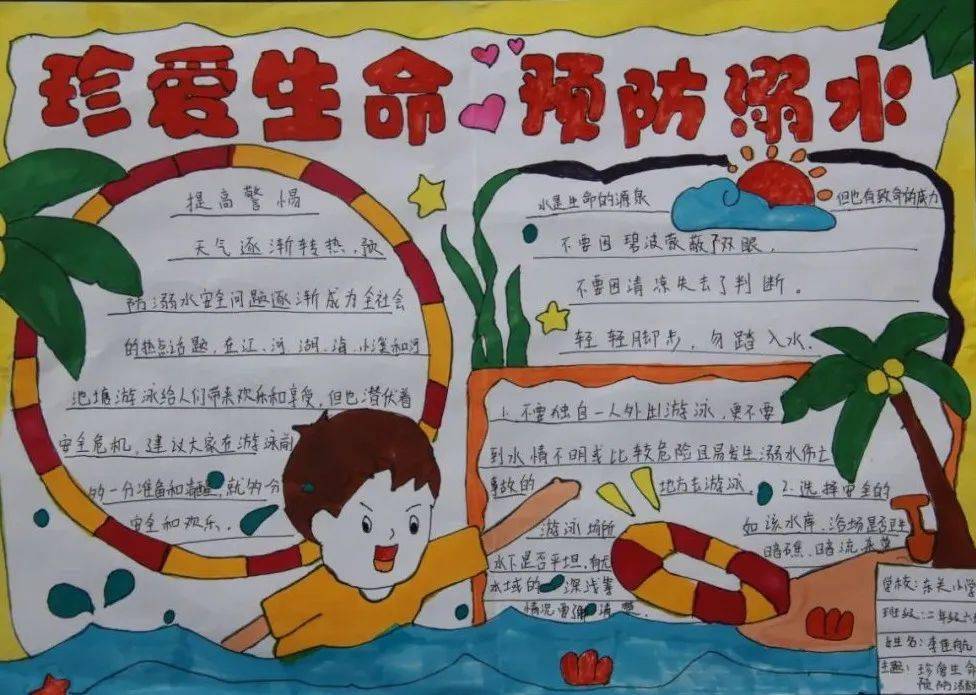 珍爱生命 预防溺水
提高警惕
天气逐渐转热,预
防溺水安全问题逐渐成为全社会
的热点话题,在江、河、湖、海、小溪和河
池塘游泳给人们带来欢乐和享受,但也潜伏着
安全危机,建议大家在游泳前
多一分准备和清醒,就多分
安全和欢乐。
水是生命的源泉 但也有致命的底力
不要因碧波蒙蔽了双眼,
不要因清凉失去了判断。
轻轻脚步,勿踏入水.
1.不要独自一人外出游泳,更不要
到水情不明或比较危险且易发生溺水伤亡
事故的 地方去游泳。2.选择安全的
游泳场所 如该水库、浴场是否卫生
水下是否平坦,有无 暗礁、暗流、杂草
水域的 深浅等
情况要了解清楚.
学校:东关小学
班级:二年级六
姓名:李佳航
主题:珍爱生命
预防溺水